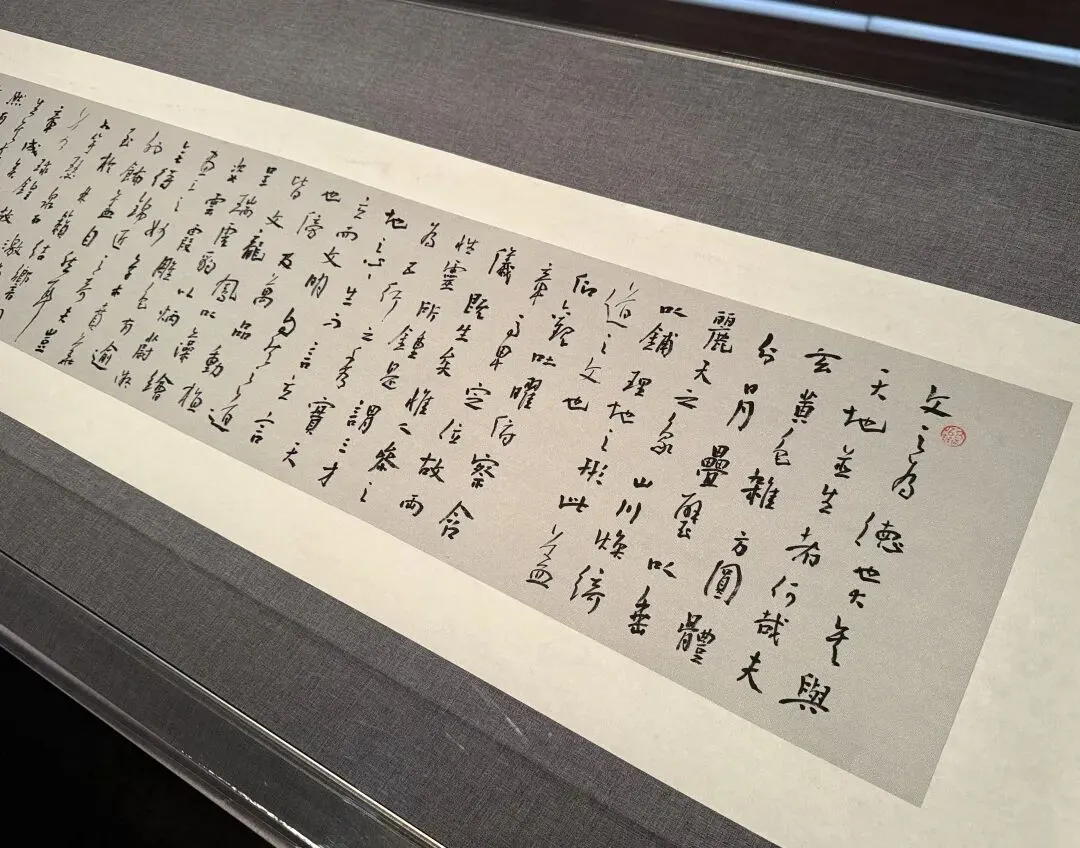 文之為德也大矣與
天地並生者何哉夫
玄黃色雜方圓體
分日月疊璧以垂
麗天之象山川煥綺
以鋪理地之形此蓋
道之文也
仰觀吐曜俯察含
章高卑定位故兩
儀既生矣惟人參之
性靈所鍾是謂三才
為五行之秀實天
地之心心生而言立言
立而文明自然之道
也傍及萬品動植
皆文龍鳳以藻繪
呈瑞虎豹以炳蔚凝
姿雲霞雕色有逾
畫工之妙草木賁華
無待錦匠之奇夫豈